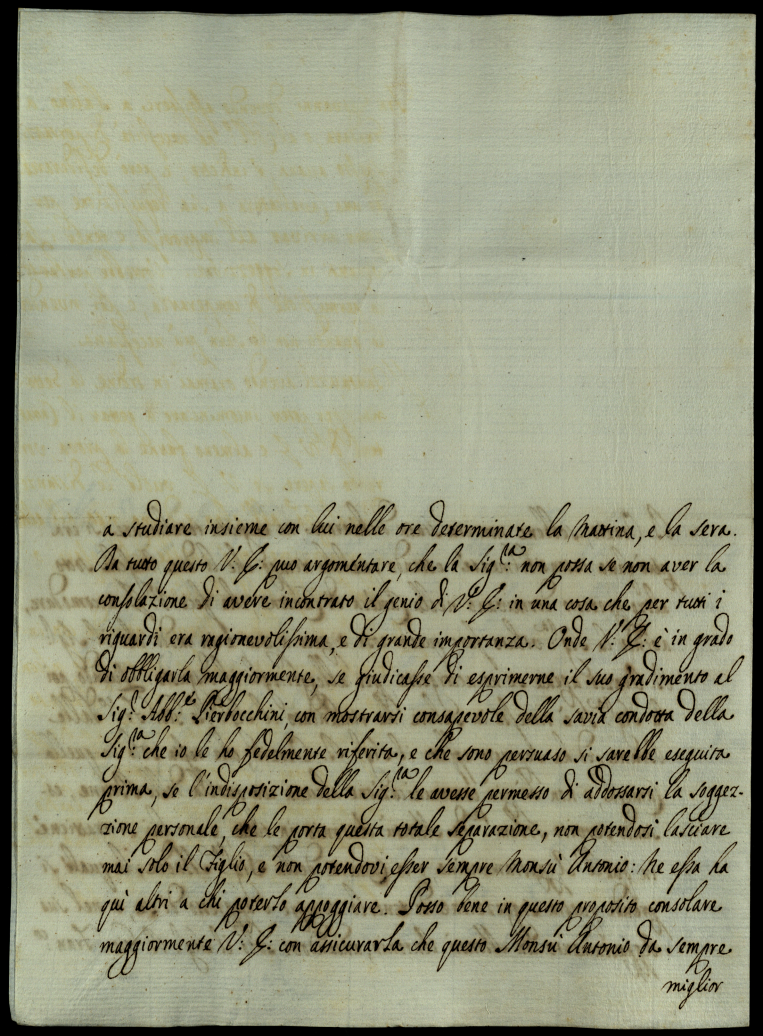 a studiare insieme con lui nelle ore determinate la Mattina, e la sera.
Da tutto questo V: S: puo argomentare, che la Sig.ra non possa se non aver la
consolazione di avere incontrato il genio di V: S: in una cosa che per tutti i
riguardi era ragionevolissima, e di grande importanza. Onde V: S: è in grado
di obbligarla maggiormente, se giudicasse di esprimerne il suo gradimento al
Sig.r Abb.e Pierbocchini, con mostrarsi consapevole della savia condotta della
Sig.ra che io le ho fedelmente riferita, e che sono persuaso si sarebbe eseguita
prima, se l'indisposizione della Sig.ra le avesse permesso di addossarsi la soggez-
zione personale, che le porta questa totale separazione, non potendosi lasciare
mai solo il Figlio, e non potendovi esser sempre Monsù Antonio: Ne essa ha
quì altri a chi poterlo appoggiare. Posso bene in questo proposito consolare
maggiormente V: S: con assicurarla che questo Monsù Antonio da sempre
miglior